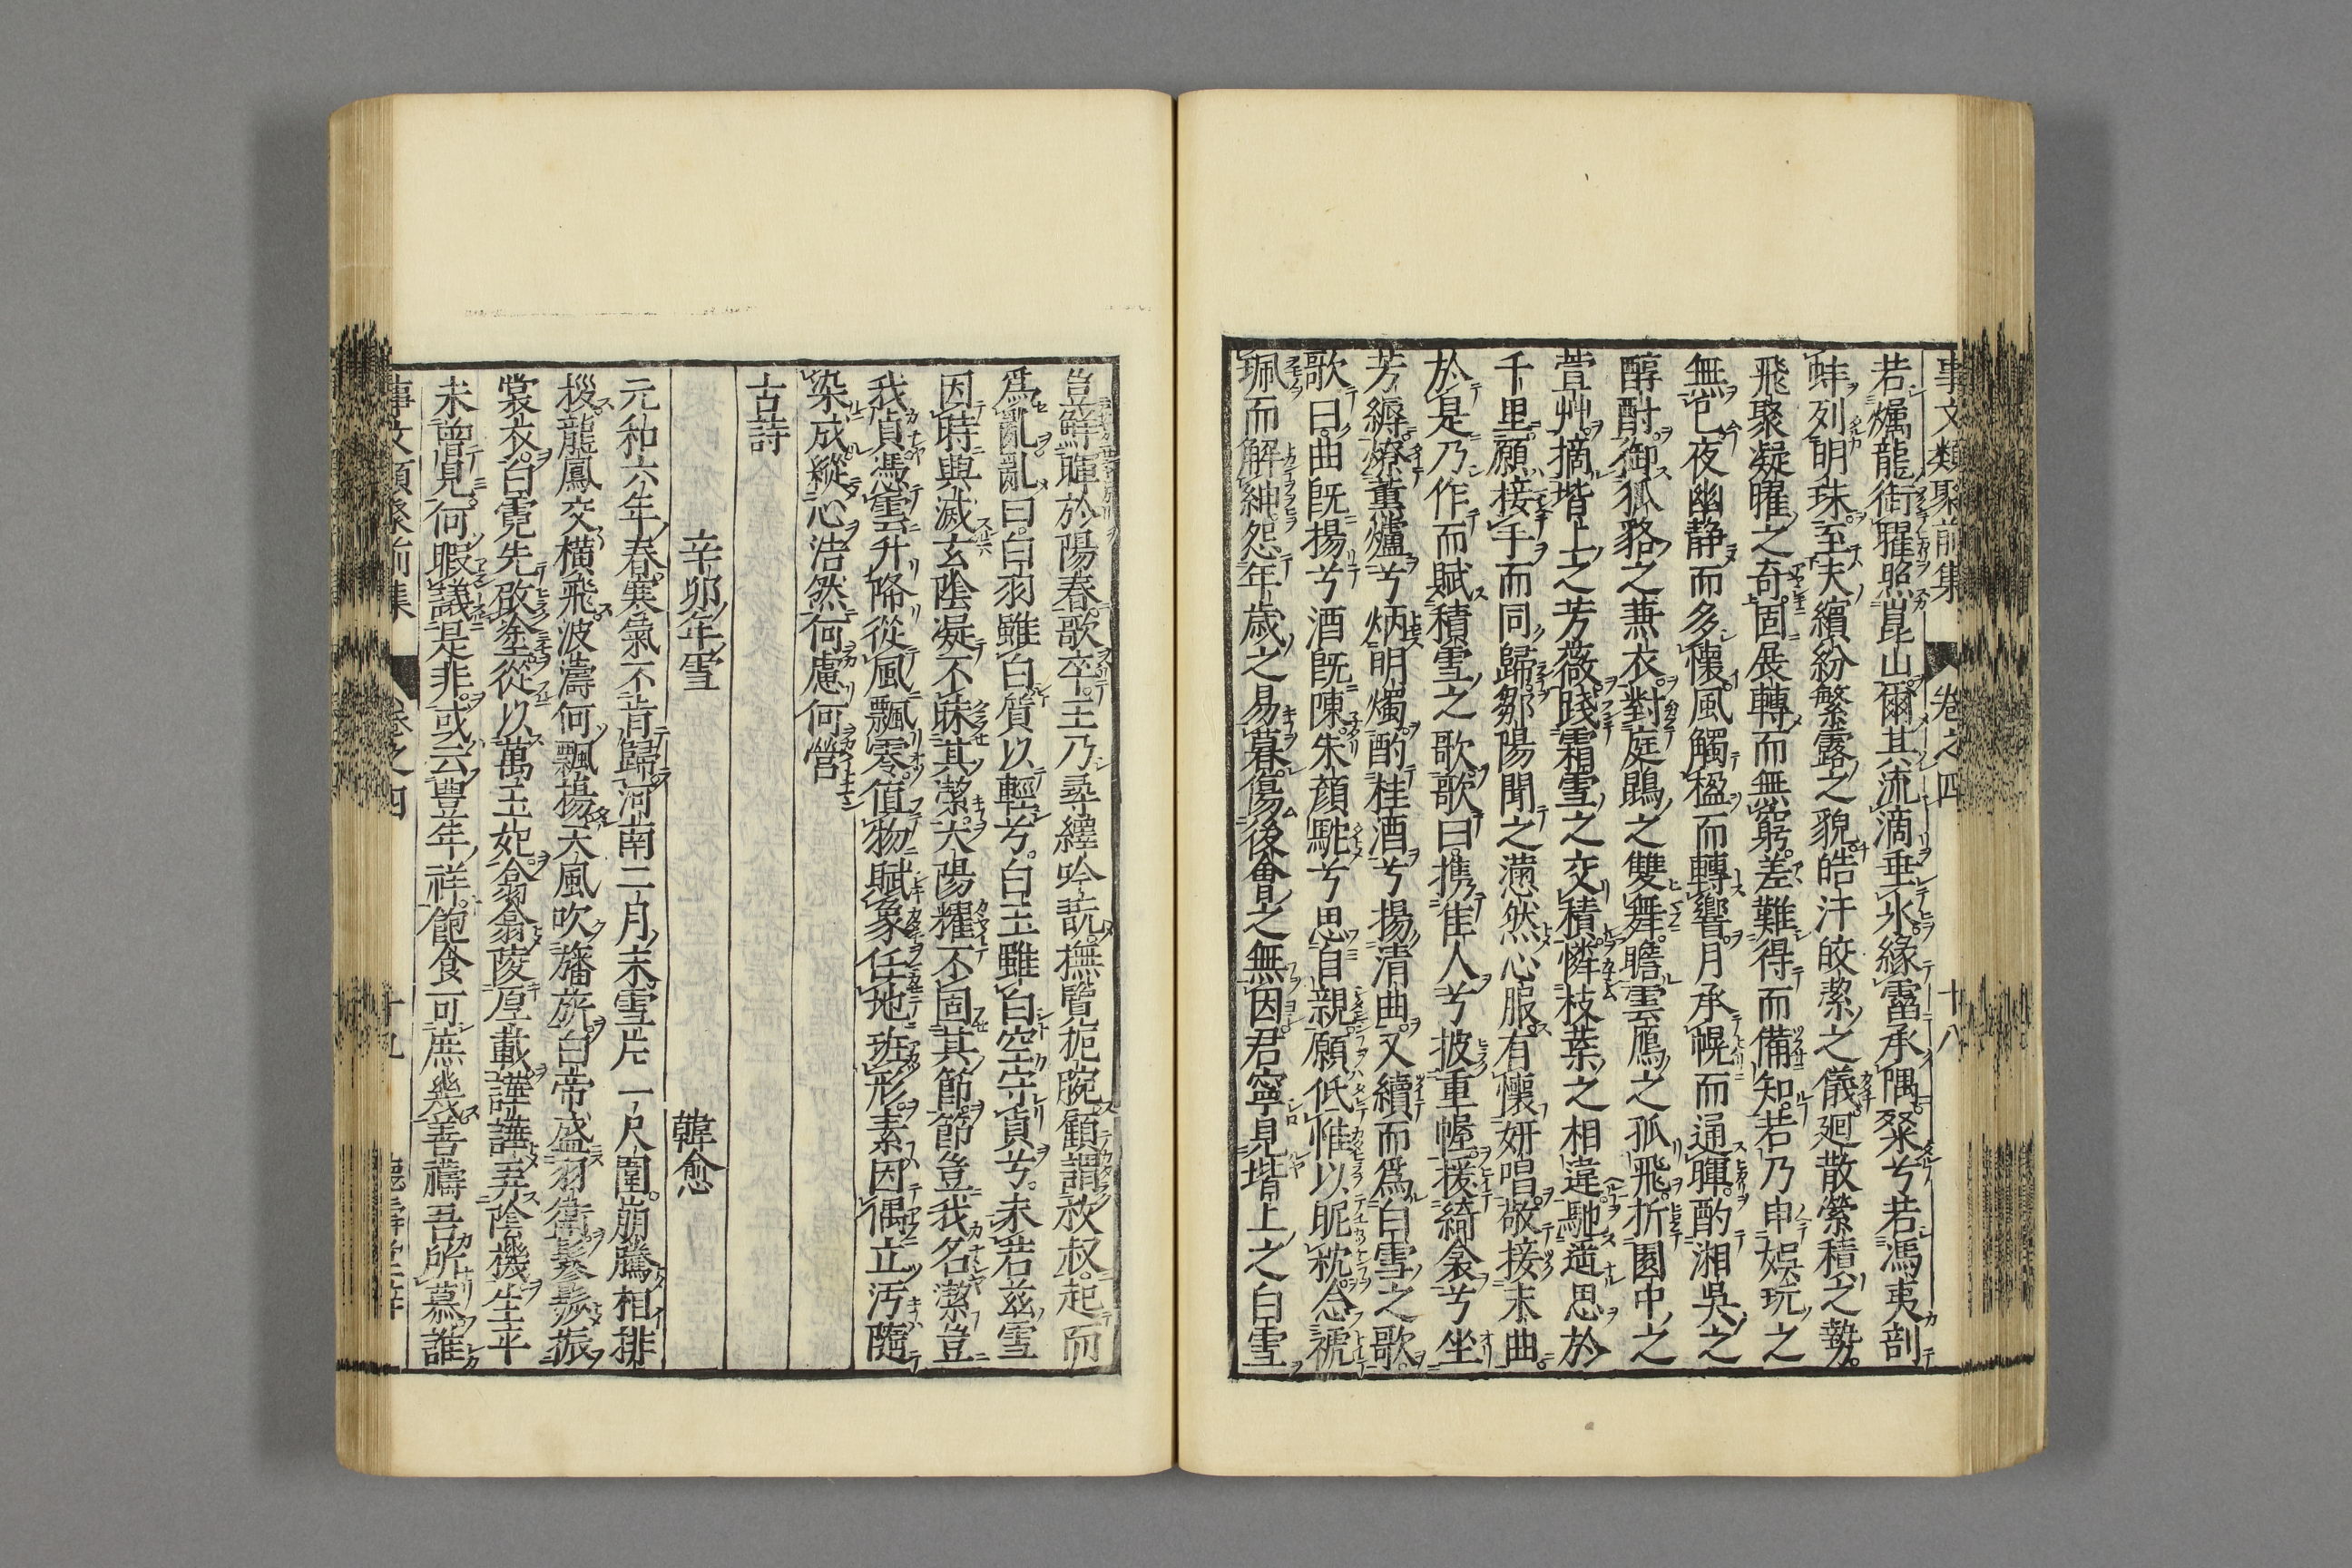 事文類聚前集 卷之四 十八
若爥龍銜耀照崑山爾其流滴垂氷緣霤承隅粲兮若馮夷剖
蚌列明珠至夫繽紛繁露之貌皓汗皎潔之儀廻散縈積之勢
飛聚凝曜之奇固展轉而無窮差難得而備知若乃申娛玩之
無已夜幽静而多懷風觸楹而轉響月承幌而通暉酌湘吳之
醇酎御狐狢之蒹衣對庭鵾之雙舞瞻雲鴈之孤飛折園中之
萱艸摘堦上之芳薇踐霜雪之交積憐枝葉之相違馳遥思於
千里願接手而同歸鄒陽聞之懣然心服有懷妍唱敬接末曲
於是乃作而賦積雪之歌歌曰携佳人兮披重幄援綺衾兮坐
芳縟燎薰爐兮炳明燭酌桂酒兮揚清曲又續而爲白雪之歌
歌曰曲既揚兮酒既陳朱顏酡兮思自親願低帷以昵枕念褫
珮而解紳怨年歲之易暮傷後會之無因君寧見堦上之白雪
豈鮮暉於陽春歌卒王乃尋繹吟翫撫覽扼腕顧謂枚叔起而
爲亂亂曰白羽雖白質以輕兮白玉雖白空守貞兮未若兹雪
因時與滅玄陰凝不昧其潔太陽耀不固其節節豈我名潔豈
我貞憑雲升降從風飄零值物賦象任地班形素因偶立汚隨
染成縱心浩然何慮何營
古詩
辛卯年雪 韓愈
元和六年春寒氣不肯歸河南二月末雪片一尺圍崩騰相排
拶龍鳳交橫飛波濤何飄揚天風吹旛旂白帝盛羽衛鬖髿振
裳衣白霓先啟塗從以萬玉妃翕翕陵厚載譁譁弄陰機生平
未曾見何暇議是非或云豊年祥飽食可庶幾善禱吾所慕誰
事文類聚前集 卷之四 十九